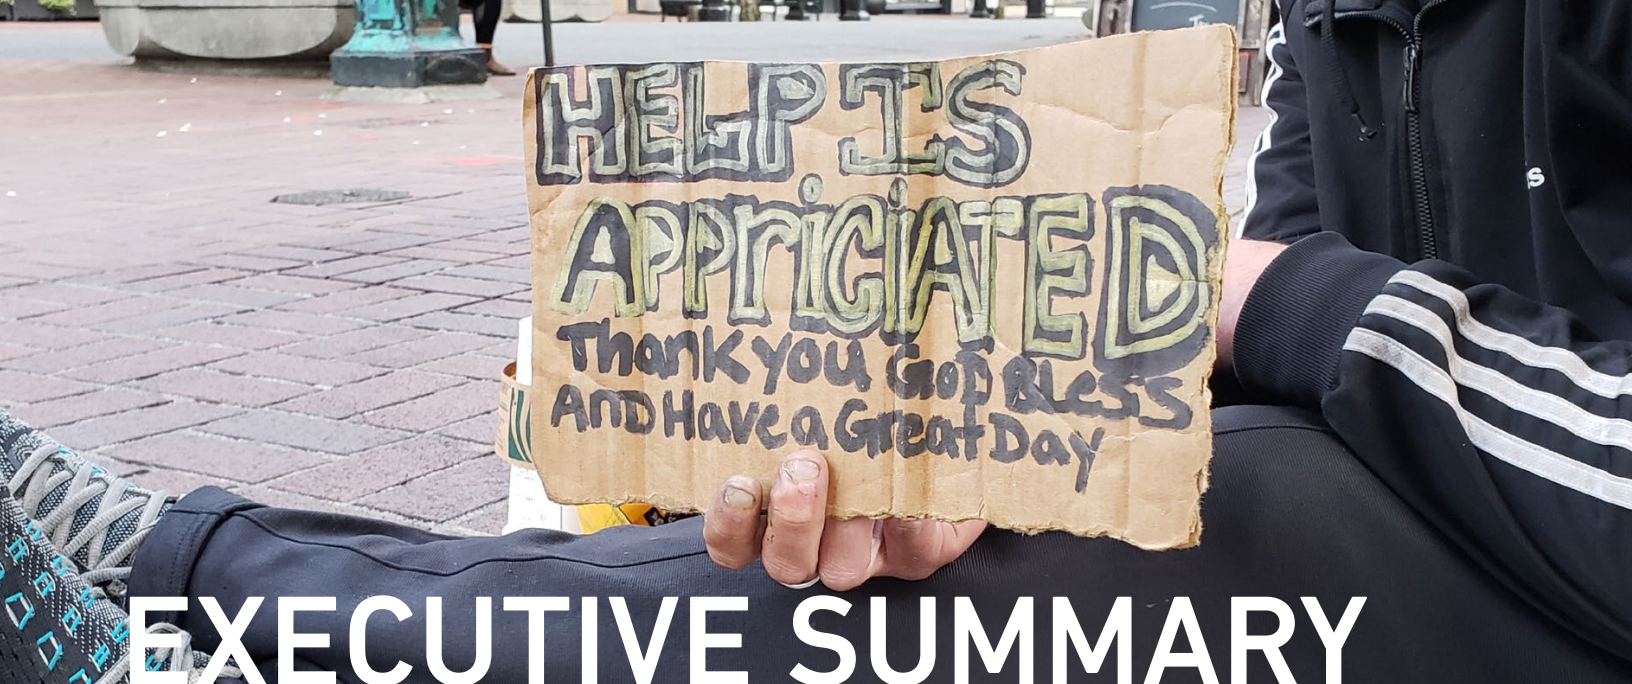 HELP IS
APPriCiATED
Thank you God Bless
And Have a Great Day
EXECUTIVE SUMMARY